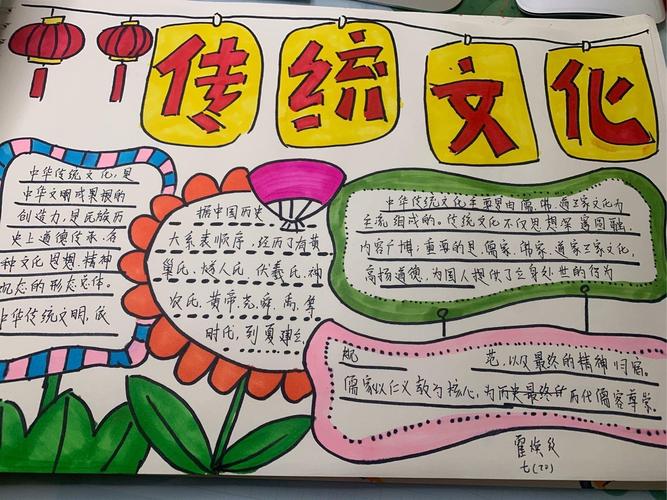 传统文化
中华传统文化，是
中华文明成果根的
创造力，是民族历
史上道德传承、各
种文化思想、精神
观念的形态总体。
中华传统文明，依
据中国历史
大系表顺序，经历了有黄
巢氏、燧人氏、伏羲氏、神
农氏、黄帝、尧、舜、禹、等
时代，到夏建立。
中华传统文化主要是由儒、佛、道三家文化为
主流组成的。传统文化不仅思想深邃圆融，
内容广博；重要的是儒家、佛家、道家三家文化，
高扬道德，为国人提供了立身处世的行为
规 范，以及最终的精神归宿。
儒家以仁义教为核心，为历史最终 历代儒客尊崇。
七(20)